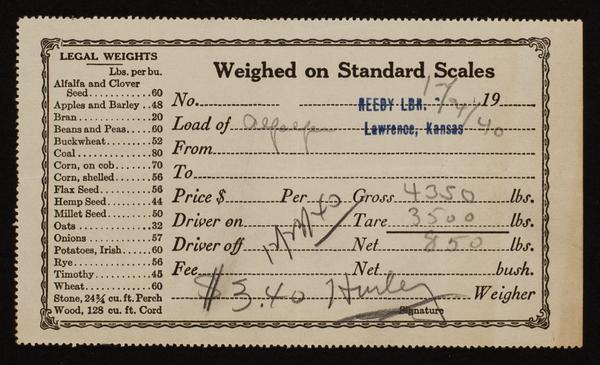 LEGAL WEIGHTS
Lbs. per bu.
Alfalfa and Clover
Seed..........60
Apples and Barley..48
Bran..............20
Beans and Peas....60
Buckwheat.........52
Coal..............80
Corn, on cob......70
Corn, shelled.....56
Flax Seed.........56
Hemp Seed.........44
Millet Seed.......50
Oats..............32
Onions............57
Potatoes, Irish...60
Rye...............56
Timothy...........45
Wheat.............60
Stone, 24¾ cu. ft. Perch
Wood, 128 cu. ft. Cord
Weighed on Standard Scales
No. REEDY LBR. 19
Load of Lawrence, Kansas
From
To
Price $ Per Gross 4350 lbs.
Driver on Tare 3500 lbs.
Driver off Net 850 lbs.
Fee Net bush.
$3.40 Hurley Weigher
Signature